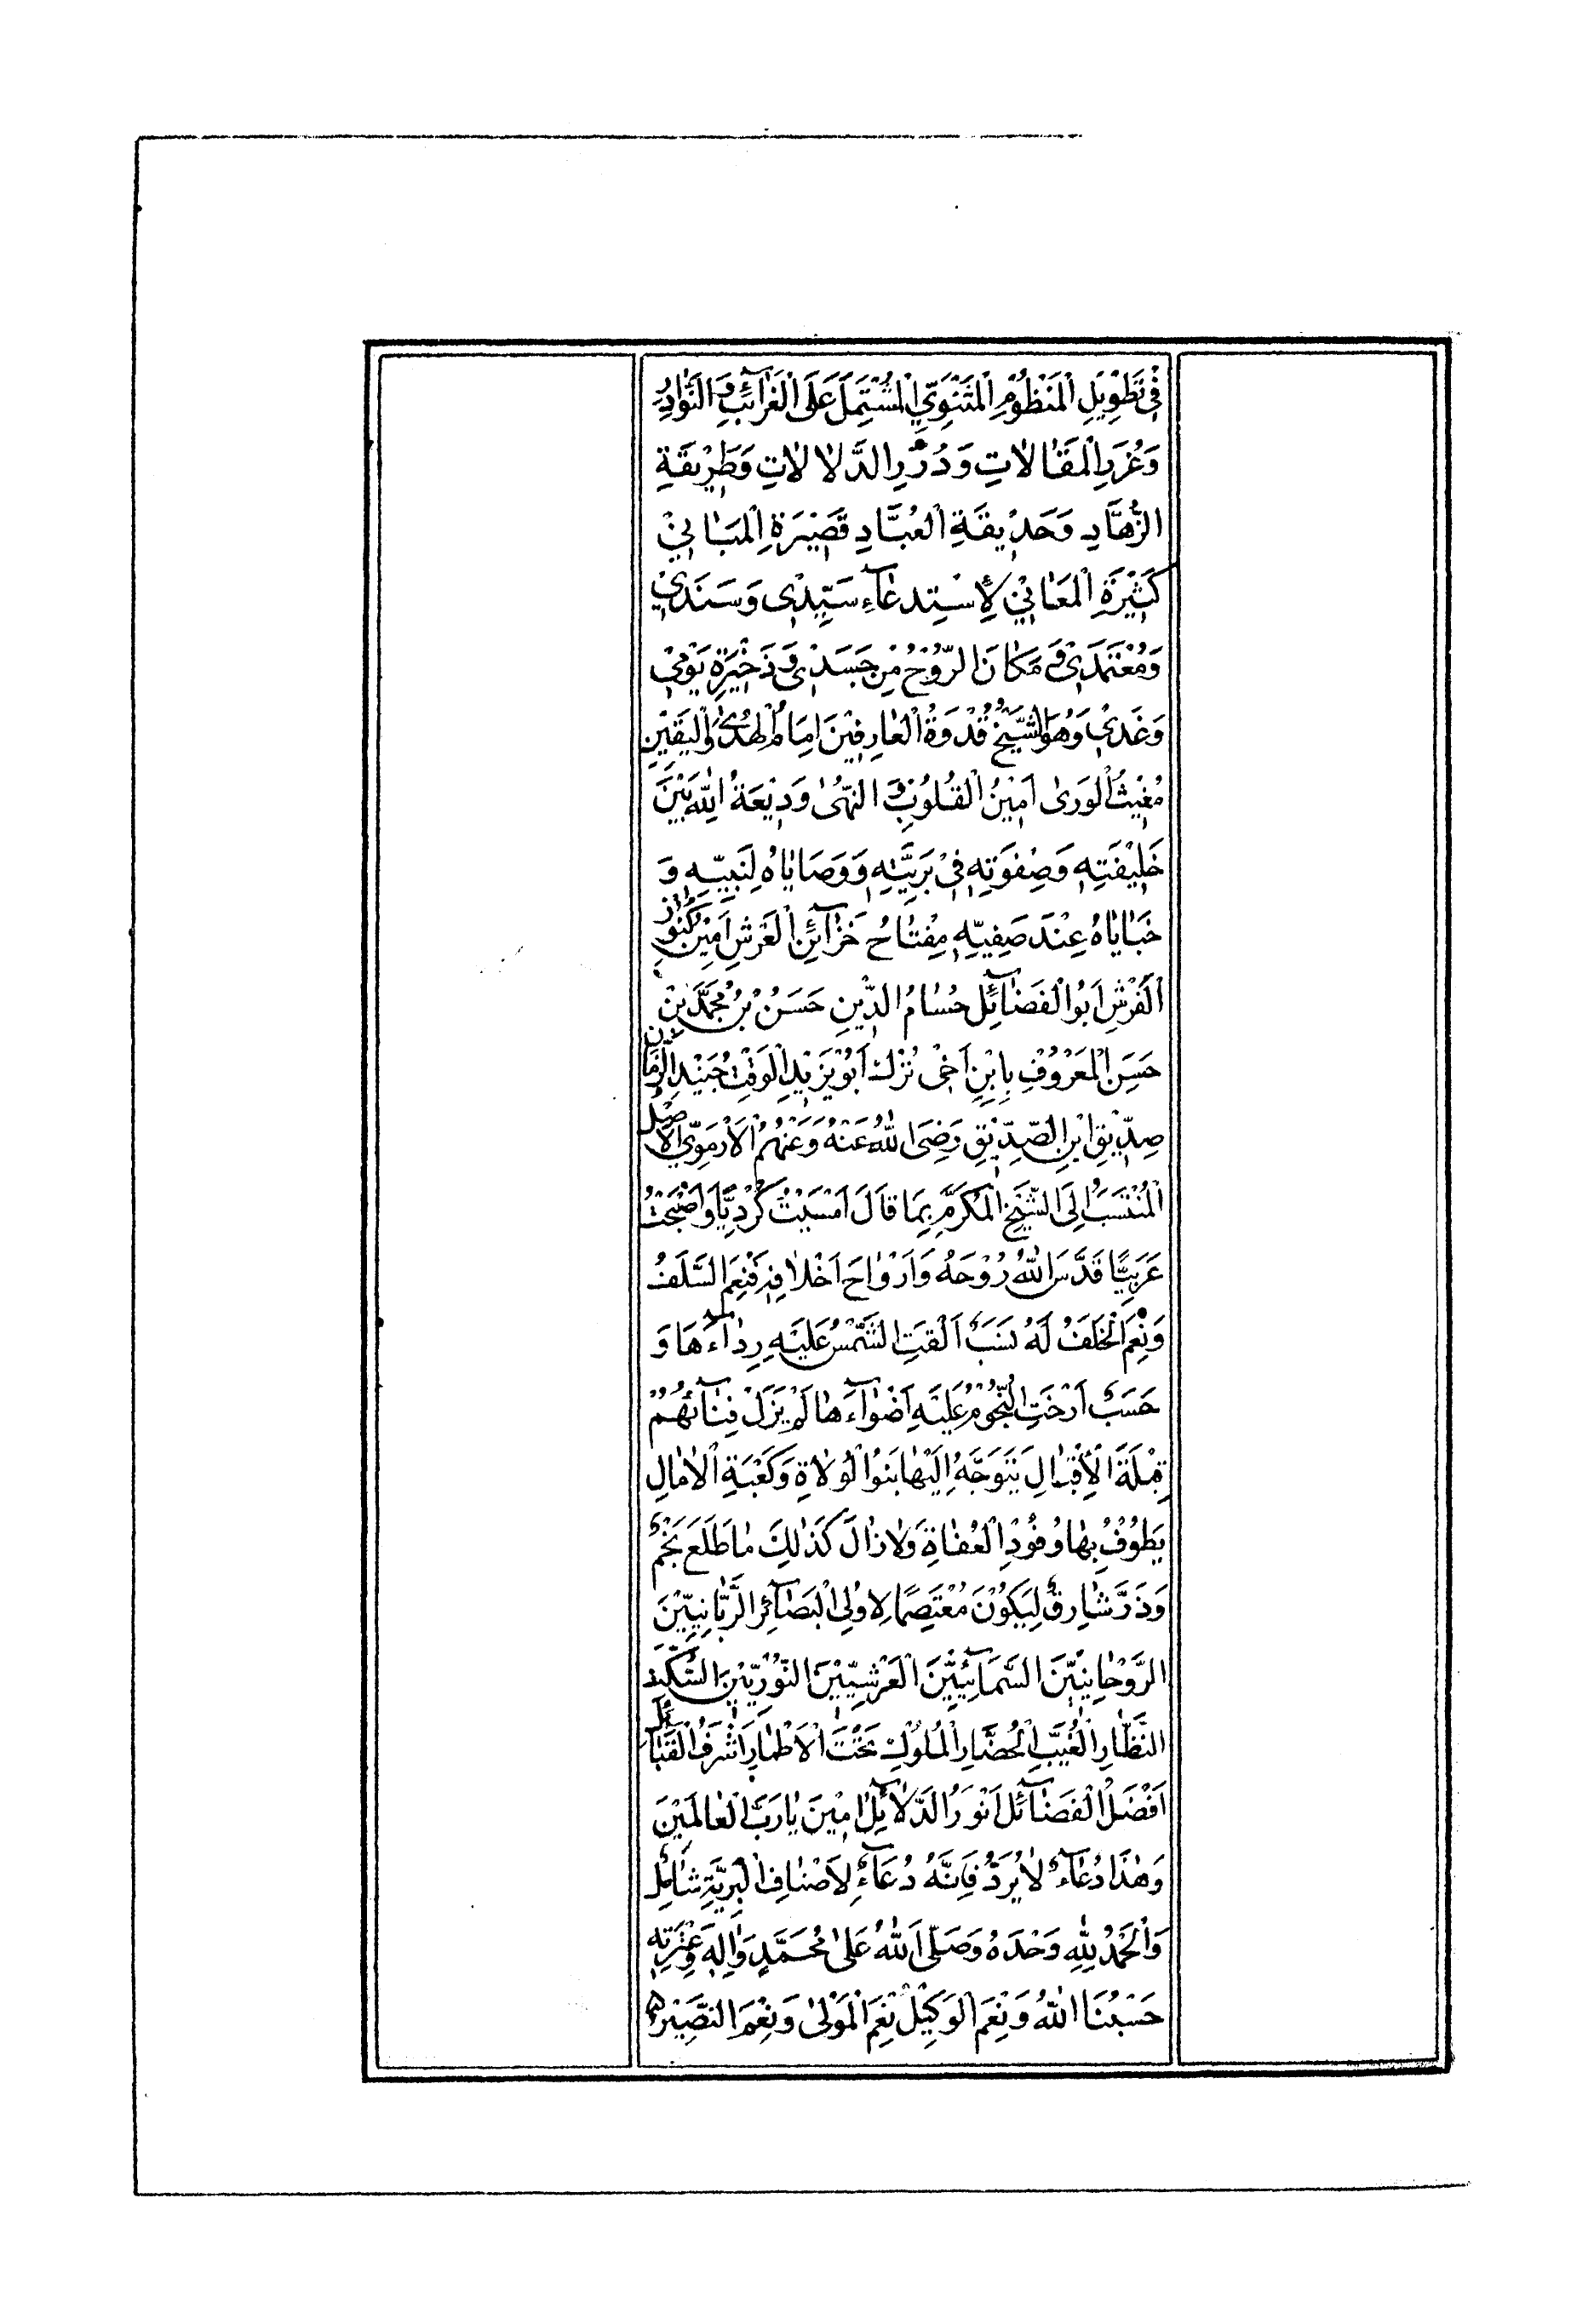 فِى تَطْوِيلِ الْمَنْظُوْمِ الْمَثْنَوِيِّ الْمُشْتَمِلِ عَلَى الْغَرَآئِبِ وَ النَّوَادِرِ
وَ غُرَرِ الْمَقَالَاتِ وَ دُرَرِ الدَّلَالَاتِ وَ طَرِيْقَةِ
الزُّهَّادِ وَ حَدِيْقَةِ الْعُبَّادِ قَصِيْرَةِ الْمَبَانِيْ
كَثِيْرَةِ الْمَعَانِيْ لِاسْتِدْعَآءِ سَيِّدِى وَ سَنَدِيْ
وَ مُعْتَمَدِى وَ مَكَانَ الرُّوْحِ مِنْ جَسَدِى وَ ذَخِيْرَةِ يَوْمِيْ
وَ غَدِيْ وَ هُوَ الشَّيْخُ قُدْوَةُ الْعَارِفِيْنَ اِمَامُ الْهُدٰى وَ الْيَقِيْنِ
مُغِيْثُ الْوَرٰى اَمِيْنُ الْقُلُوْبِ وَ النُّهٰى وَدِيْعَةُ اللّٰهِ بَيْنَ
خَلِيْفَتِهِ وَ صِفْوَتِهِ فِىْ بَرِيَّتِهِ وَ وَصَايَاهُ لِنَبِيِّهِ وَ
خَبَايَاهُ عِنْدَ صَفِيِّهِ مِفْتَاحُ خَزَآئِنِ الْعَرْشِ اَمِيْنُ كُنُوْزِ
الْفَرْشِ اَبُو الْفَضَآئِلِ حُسَامُ الدِّيْنِ حَسَنُ بْنُ مُحَمَّدِ بْنِ
حَسَنِ الْمَعْرُوْفِ بِابْنِ اَخِىْ تُرْكْ اَبُوْ يَزِيْدِ الْوَقْتِ جُنَيْدِ الزَّمَانِ
صِدِّيْقِ ابْنِ الصِّدِّيْقِ رَضِىَ اللّٰهُ عَنْهُ وَ عَنْهُمْ الْاَرْمَوِيِّ الْاَصْلِ
الْمُنْتَسَبُ اِلَى الشَّيْخِ الْمُكَرَّمِ بِمَا قَالَ اَمْسَيْتُ كُرْدِيًّا وَ اَصْبَحْتُ
عَرَبِيًّا قَدَّسَ اللّٰهُ رُوْحَهُ وَ اَرْوَاحَ اَخْلَافِهِ فَنِعْمَ السَّلَفُ
وَ نِعْمَ الْخَلَفُ لَهُ نَسَبٌ اَلْقَتِ الشَّمْسُ عَلَيْهِ رِدَآءَهَا وَ
حَسَبٌ اَرْخَتِ النُّجُوْمُ عَلَيْهِ اَضْوَآءَهَا لَمْ يَزَلْ فِنَآئُهُمْ
قِبْلَةَ الْاِقْبَالِ يَتَوَجَّهُ اِلَيْهَا بَنُوا الْوُلَاةِ وَ كَعْبَةِ الْاٰمَالِ
يَطُوْفُ بِهَا وُفُوْدِ الْعُفَاةِ وَ لَا زَالَ كَذٰلِكَ مَا طَلَعَ نَجْمٌ
وَ ذَرَّ شَارِقٌ لِيَكُوْنَ مُعْتَصِمًا لِاُولِى الْبَصَآئِرِ الرَّبَّانِيِّيْنَ
الرَّوْحَانِيِّيْنَ السَّمَآئِيِّيْنَ الْعَرْشِيِّيْنَ النُّوْرِيِّيْنَ السُّكَّتِ
النُّظَّارِ الْغُيَّبِ الْحُضَّارِ الْمُلُوْكِ تَحْتَ الْاَطْمَارِ اَشْرَفُ الْقَبَآئِلِ
اَفْضَلُ الْفَضَآئِلِ اَنْوَرُ الدَّلَآئِلِ اٰمِيْنَ يَا رَبَّ الْعَالَمِيْنَ
وَ هٰذَا دُعَآءٌ لَا يُرَدُّ فَاِنَّهُ دُعَآءٌ لِاَصْنَافِ الْبَرِيَّةِ شَامِلٌ
وَ الْحَمْدُ لِلّٰهِ وَحْدَهُ وَ صَلَّى اللّٰهُ عَلٰى مُحَمَّدٍ وَ اٰلِهِ وَ عِتْرَتِهِ
حَسْبُنَا اللّٰهُ وَ نِعْمَ الْوَكِيْلُ نِعْمَ الْمَوْلٰى وَ نِعْمَ النَّصِيْرُ